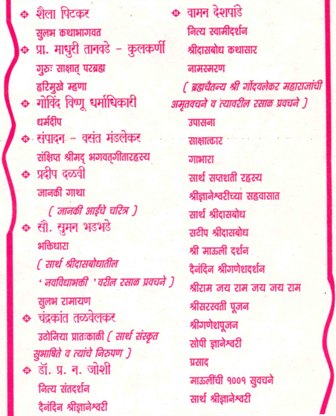 ❖ शैला पिटकर
सुलभ कथाभागवत
❖ प्रा. माधुरी तानवडे - कुलकर्णी
गुरुः साक्षात् परब्रह्म
हरिमुखे म्हणा
❖ गोविंद विष्णू धर्माधिकारी
धर्मदीप
❖ संपादन - वसंत मंडलेकर
संक्षिप्त श्रीमद् भगवद्गीतारहस्य
❖ प्रदीप दळवी
जानकी गाथा
( जानकी आईचे चरित्र )
❖ सौ. सुमन भडभडे
भक्तिधारा
( सार्थ श्रीदासबोधातील
'नवविधाभक्ती' वरील रसाळ प्रवचने )
सुलभ रामायण
❖ चंद्रकांत तळवेलकर
उठोनिया प्रातःकाळी ( सार्थ संस्कृत
सुभाषिते व त्यांचे निरुपण )
❖ डॉ. प्र. न. जोशी
नित्य संतदर्शन
दैनंदिन श्रीज्ञानेश्वरी
❖ वामन देशपांडे
नित्य स्वामीदर्शन
श्रीदासबोध कथासार
नामस्मरण
( ब्रह्मचैतन्य श्री गोंदवलेकर महाराजांची
अमृतवचने व त्यावरील रसाळ प्रवचने )
उपासना
साक्षात्कार
गाभारा
सार्थ सप्तशती रहस्य
श्रीज्ञानेश्वरीच्या सहवासात
सार्थ श्रीदासबोध
सटीप श्रीदासबोध
श्री माऊली दर्शन
दैनंदिन श्रीगणेशदर्शन
श्रीराम जय राम जय जय राम
श्रीसरस्वती पूजन
श्रीगणेशपूजन
सोपी ज्ञानेश्वरी
प्रसाद
माऊलींची १००१ सुवचने
सार्थ श्रीज्ञानेश्वरी